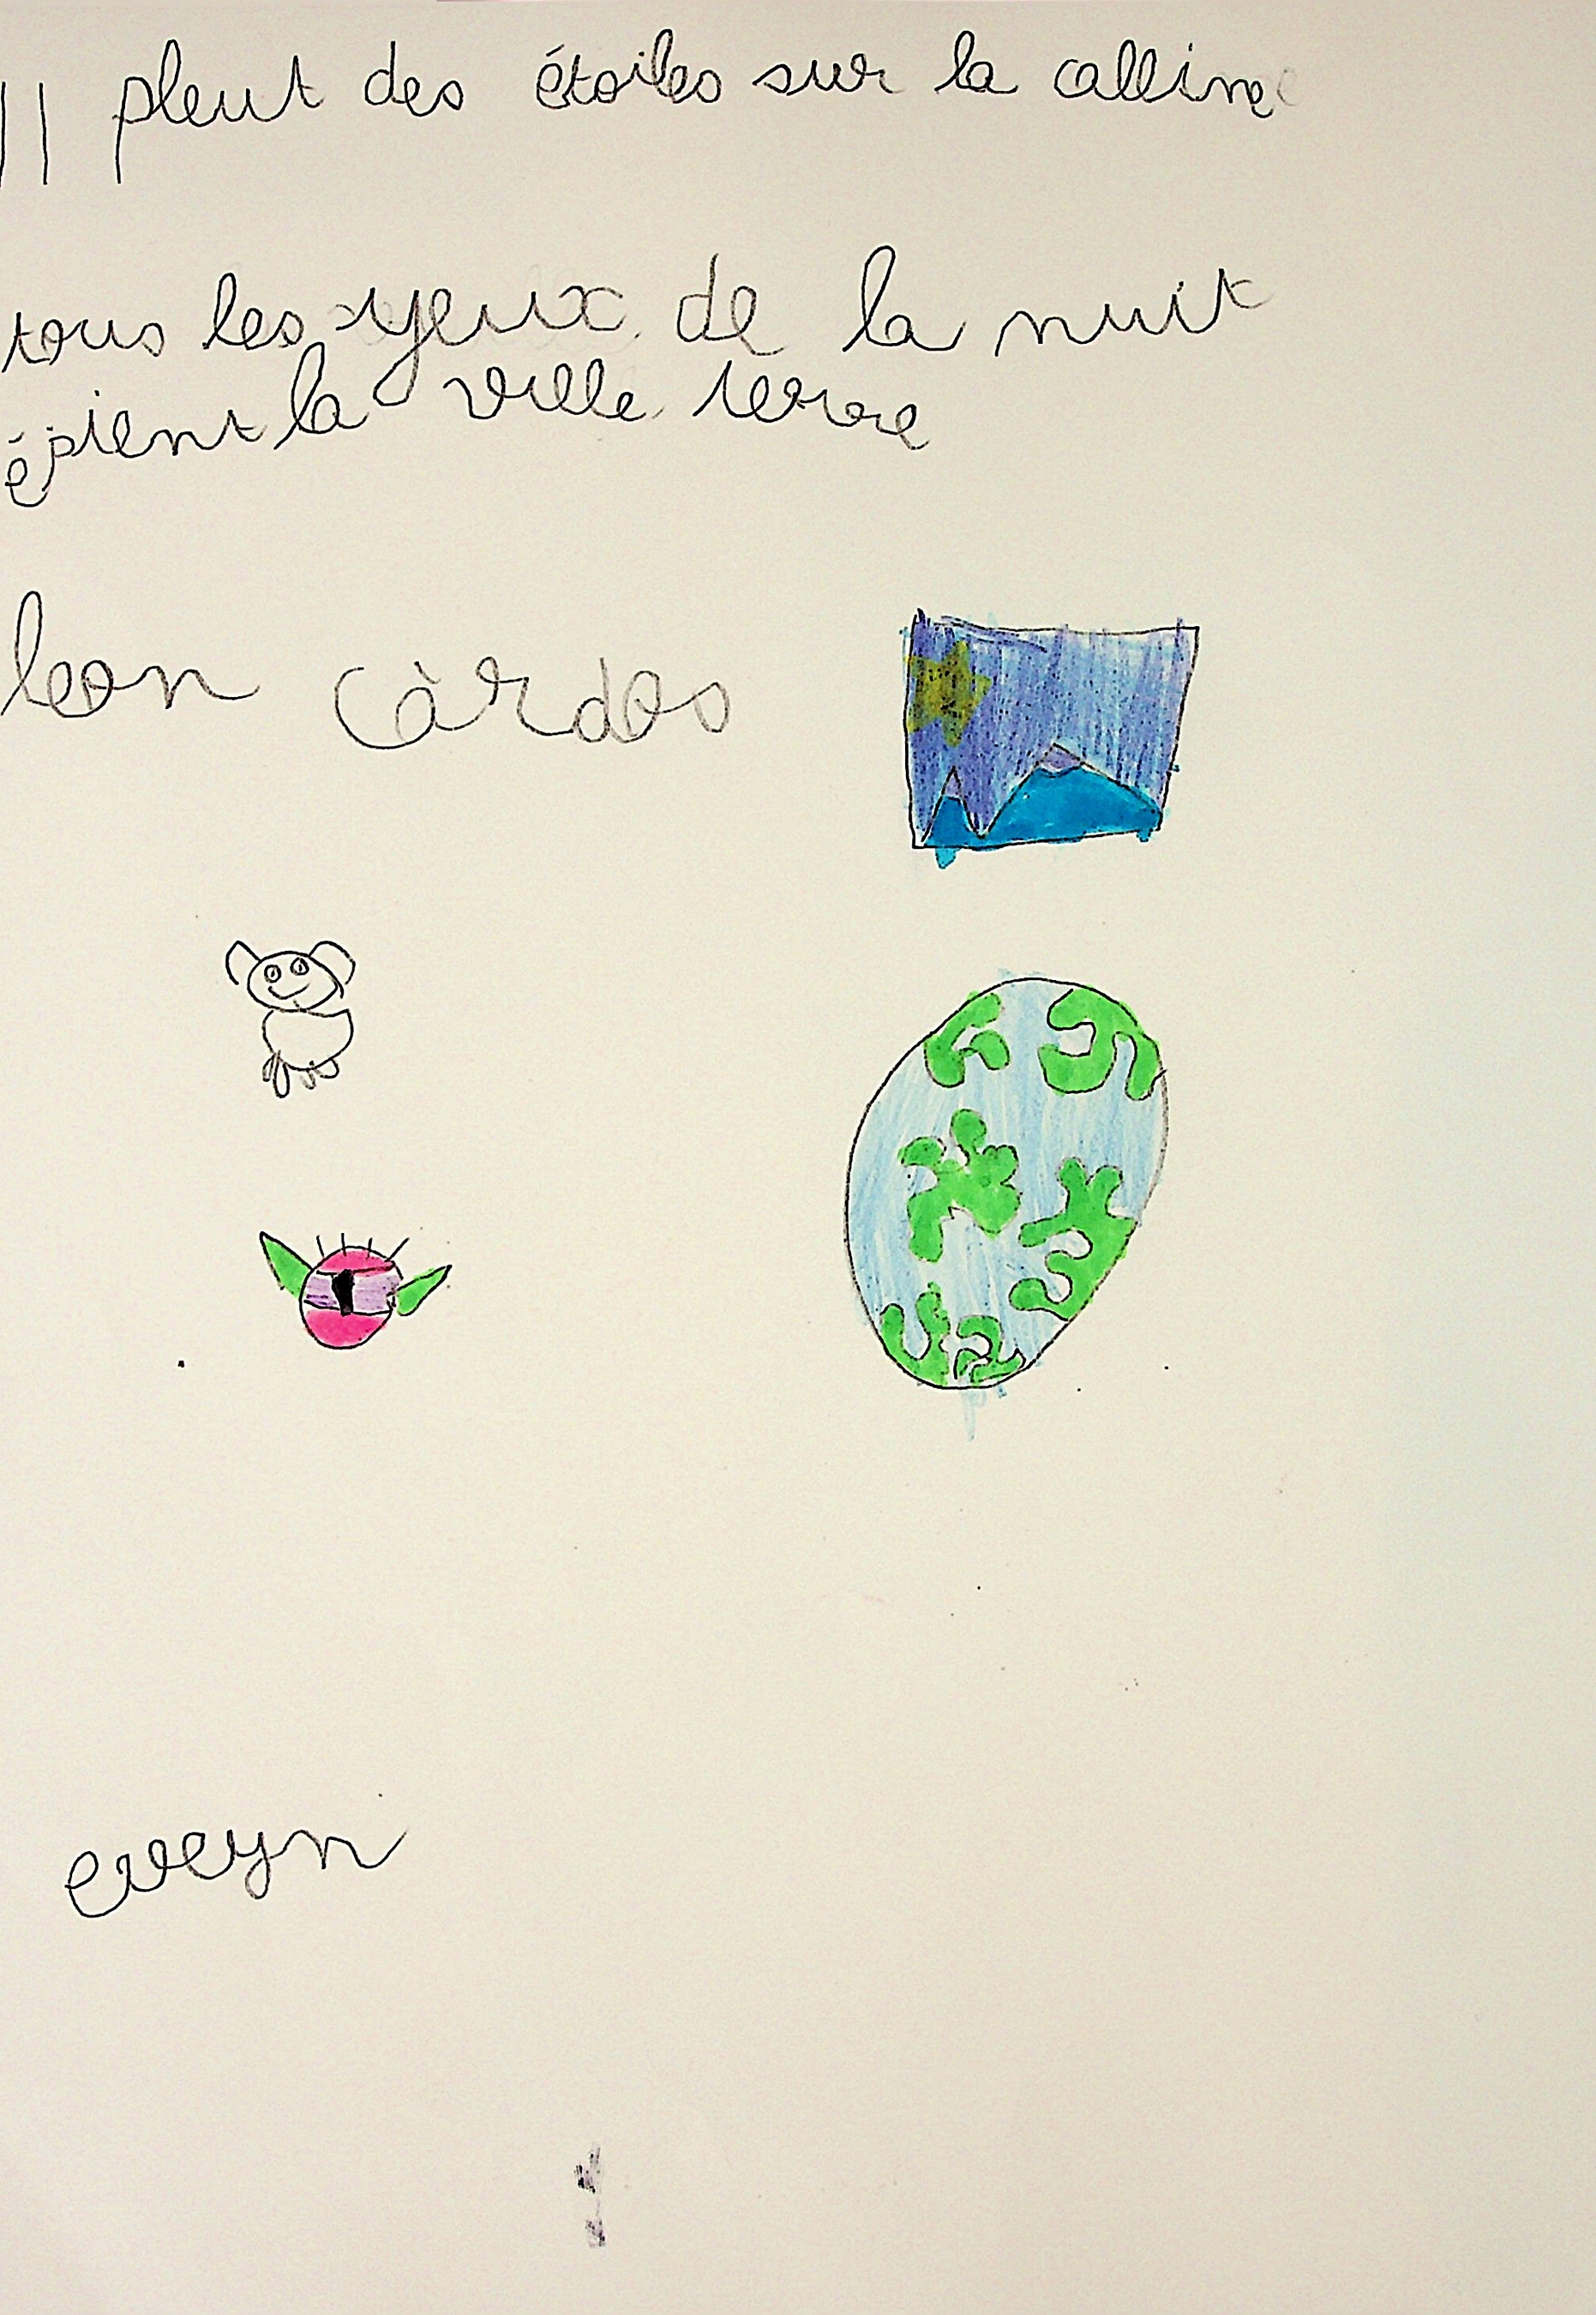 Il pleut des étoiles sur la colline
tous les yeux de la nuit
épient la ville terre
leon càrdes
eveyn